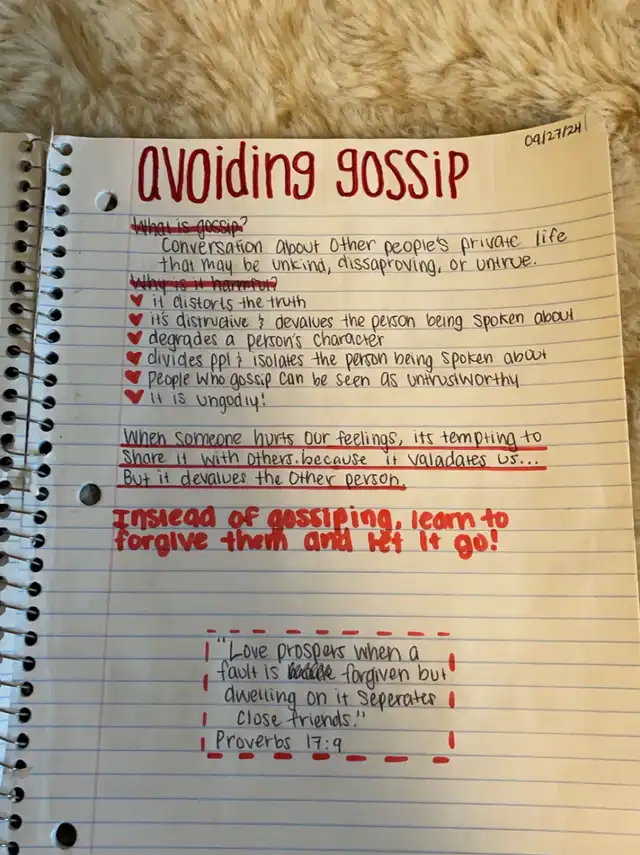 09/27/24
avoiding gossip
What is gossip?
Conversation about other people's private life
that may be unkind, dissaproving, or untrue.
Why is it harmful?
it distorts the truth
it's distructive & devalues the person being spoken about
degrades a person's character
divides ppl & isolates the person being spoken about
people who gossip can be seen as untrustworthy
it is ungodly!
When someone hurts our feelings, its tempting to
share it with others. because it valadates us...
But it devalues the other person.
Instead of gossiping, learn to
forgive them and let it go!
"Love prospers when a
fault is forgiven but
dwelling on it seperates
close friends."
Proverbs 17:9